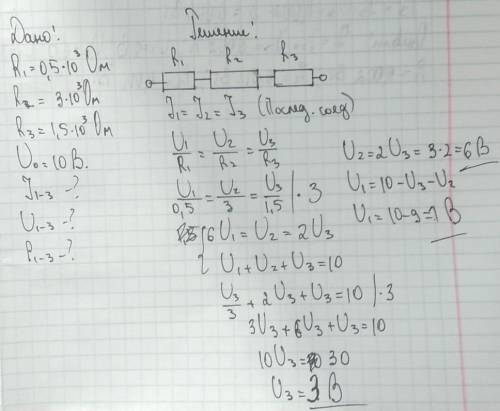 Дано:
R₁ = 0,5·10³ Ом
R₂ = 3·10³ Ом
R₃ = 1,5·10³ Ом
U₀ = 10 В.
I₁₋₃ - ?
U₁₋₃ - ?
P₁₋₃ - ?
Решение:
R₁ R₂ R₃
I₁ = I₂ = I₃ (Послед. соед)
U₁/R₁ = U₂/R₂ = U₃/R₃
U₁/0,5 = U₂/3 = U₃/1,5 |·3
{ 6U₁ = U₂ = 2U₃
U₁ + U₂ + U₃ = 10
U₃/3 + 2U₃ + U₃ = 10 |·3
3U₃ + 6U₃ + U₃ = 10
10U₃ = 30
U₃ = 3 В
U₂ = 2U₃ = 3·2 = 6 В
U₁ = 10 - U₃ - U₂
U₁ = 10 - 9 = 1 В